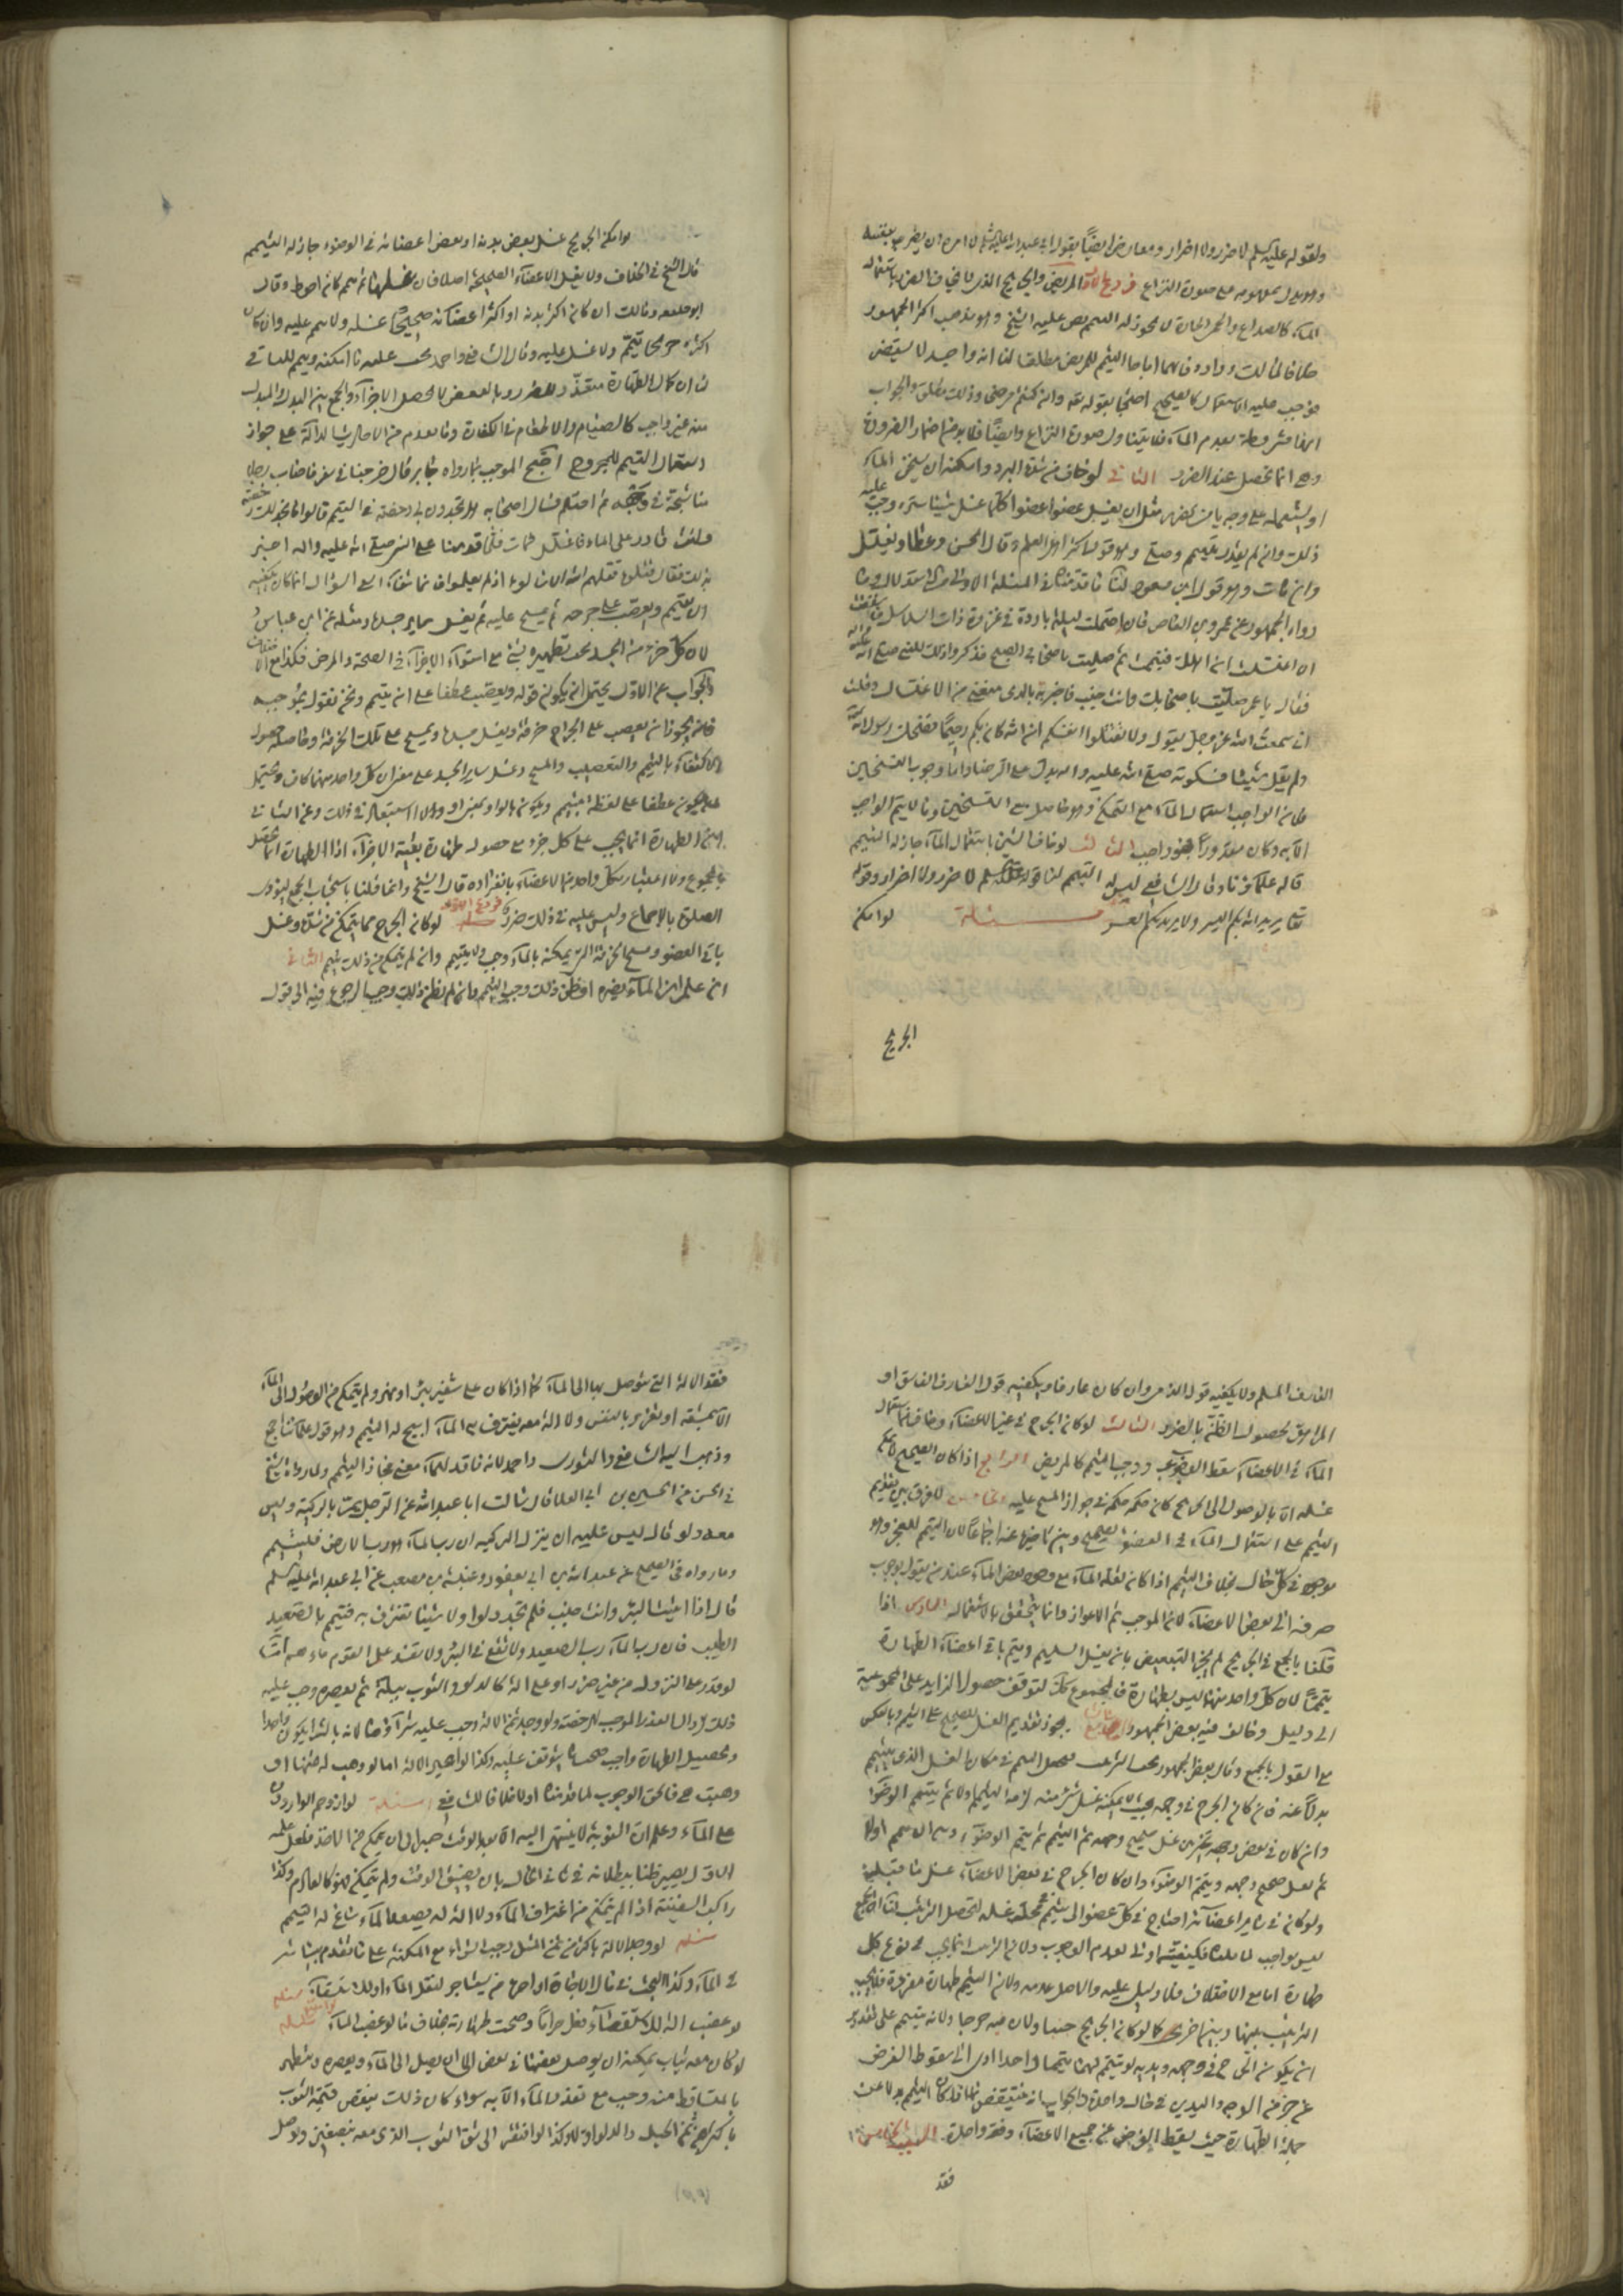 ولقوله عليه السلم لا ضرر ولا اضرار ومعارض ايضا بقول ابي عبد الله عليه السلم
المآء كالصداع والحمى الحارة لا يجوز له التيمم نص عليه الشيخ وهو مذهب اكثر الجمهور
خلافا لمالك وداود فانهما اباحا التيمم للمريض مطلقا لنا انه واجد لا يستضر
فوجب عليه الاستعمال كالصحيح احتجا بقوله تعه وان كنتم مرضى وذلك مطلق والجواب
انها مشروطة بعدم المآء فلا يتناول صورة النزاع وايضا فلا بد من اضمار الضرورة
وهى انما تحصل عند الضرر الثاني لو خاف من شدة البرد وامكنه ان يسخن المآء
او يستعمله على وجه يامن الضرر مثل ان يغسل عضوا عضوا كلما غسل شيئا ستره وجب عليه
ذلك وان لم يقدر تيمم وصلى وهو قول اكثر اهل العلم وقال الحسن وعطا يغتسل
وان مات وهو قول ابن مسعود لنا ما قدمناه في المسئلة الاولى من الاستدلال وما
رواه الجمهور عن عمرو بن العاص قال احتملت ليلة باردة في غزوة ذات السلاسل فاشفقت
ان اغتسلت ان اهلك فتيممت ثم صليت باصحابي الصبح فذكروا ذلك للنبي صلى الله عليه واله
فقال يا عمرو صليت باصحابك وانت جنب فاخبرته بالذي منعني من الاغتسال وقلت
انى سمعت الله عز وجل يقول ولا تقتلوا انفسكم ان الله كان بكم رحيما فضحك رسول الله
ولم يقل شيئا فسكوته صلى الله عليه واله يدل على الرضا واما وجوب التسخين
فلان الواجب استعمال المآء مع التمكن وهو حاصل مع التسخين وما لا يتم الواجب
الا به وكان مقدورا فهو واجب الثالث لو خاف الشين باستعمال المآء جاز له التيمم
قاله علماؤنا وقال الشافعي ليس له التيمم لنا قوله عليه السلم لا ضرر ولا اضرار وقوله
تعالى يريد الله بكم اليسر ولا يريد بكم العسر مسئلة لو امكن
الجريح
لو امكن الجريح غسل بعض بدنه او بعض اعضائه في الوضوء جاز له التيمم
قال الشيخ في الخلاف ولا يغسل الاعضآء الصحيحة اصلا فان غسلها ثم تيمم كان احوط وقال
ابو حنيفة ومالك ان كان اكثر بدنه او اكثر اعضائه صحيحا غسله ولا تيمم عليه وان كان
اكثره جريحا يتيمم ولا غسل عليه وقال الشافعي واحمد يجب عليه ما امكنه ويتيمم للباقي
لنا ان كمال الطهارة متعذر وبالبعض لا يحصل الاجزآء والجمع بين البدل والمبدل
منه غير واجب كالصيام والاطعام في الكفارة وما تقدم من الاحاديث الدالة على جواز
استعمال التيمم للمجروح احتج الموجب بما رواه جابر قال خرجنا في سفر فاصاب رجلا
منا شجة في وجهه ثم احتلم فسال اصحابه هل تجدون لي رخصة في التيمم قالوا ما نجد لك رخصة
وانت قادر على الماء فاغتسل فمات فلما قدمنا على النبي صلى الله عليه واله اخبر
بذلك فقال قتلوه قتلهم الله الا سالوا اذ لم يعلموا فانما شفآء العي السؤال انما كان يكفيه
ان يتيمم ويعصب على جرحه ثم يمسح عليه ثم يغسل ساير جسده ومثله عن ابن عباس
لان كل جزء من الجسد يجب تطهيره بشئ مع استوآء الاجزآء في الصحة والمرض فكذا مع الاختلاف
والجواب عن الاول يحتمل ان يكون قوله ويعصب عطفا على ان يتيمم ونحن نقول بموجبه
فانه يجوز ان يعصب على الجراح خرقة ويغسل جسده ويمسح على تلك الخرقة وحاصله حصول
الاكتفآء بالتيمم والتعصيب والمسح وغسل ساير الجسد على معنى ان كل واحد منهما كاف ويحتمل
ان يكون عطفا على لفظة يتيمم ويكون بالواو بمعنى او ولا استبعاد في ذلك وعن الثاني
ان الطهارة انما يجب على كل جزء مع حصول طهارة بقية الاجزآء اذ الطهارة انما تحصل
بالمجموع ولا اعتبار بكل واحد من الاعضآء بانفراده قال الشيخ وانما قلنا باستحباب الجمع ليؤدى
الصلوة بالاجماع وليس عليه في ذلك ضرر فروع الاول لو كان الجرح مما يتمكن من شده وغسل
باقى العضو ومسح الخرقة التي يمكنه بالمآء وجب ولا يتيمم وان لم يتمكن من ذلك تيمم الثاني
ان علم ان المآء يضره او ظن ذلك وجب التيمم وان لم يظن ذلك وجب الرجوع فيه الى قول
العارف المسلم ولا يكفيه قول الذمى وان كان عارفا ويكفيه قول العارف الفاسق او
المراهق لحصول الظن بالضرر الثالث لو كان الجرح في غير الاعضآء وخاف من استعمال
المآء في الاعضآء سقط الوضوء ووجب التيمم كالمريض الرابع اذا كان الصحيح لا يمكن
غسله الا بالوصول الى الجريح كان حكمه حكمه في جواز المسح عليه الخامس لا فرق بين تقديم
التيمم على استعمال المآء في العضو الصحيح وبين تاخيره عنه اجماعا لان التيمم للعجز وهو
موجود في كل حال بخلاف التيمم اذا كان لقلة المآء مع وجود بعض المآء عند من يقول بوجوب
صرفه الى بعض الاعضآء لان الموجب ثم الاعواز وانما يتحقق بالاستعمال السادس اذا
قلنا بالجمع في الجريح لم يجز التبعيض بان يغسل السليم ويتم باقى اعضآء الطهارة
تيمما لان كل واحد منهما ليس بطهارة فالمجموع كذلك لتوقف حصول الزايد على المجموعية
الى دليل وخالف فيه بعض الجمهور السابع يجوز تقديم الغسل للصحيح على التيمم وبالعكس
مع القول بالجمع وقال بعض الجمهور يجب الترتيب فيجعل التيمم في مكان الغسل الذي يتيمم
بدلا عنه فان كان الجرح في وجهه بحيث لا يمكنه غسل شئ منه لزمه التيمم اولا ثم يتيمم الوضوء
وان كان في بعض وجهه تخير بين غسل صحيح وجهه ثم التيمم ثم يتمم الوضوء وبين ان يتيمم اولا
ثم يغسل صحيح وجهه ويتمم الوضوء وان كان الجرح في بعض الاعضآء غسل ما قبله
ولو كان في ساير اعضائه احتاج في كل عضو الى تيمم في محل غسله لتحصل الترتيب لنا ان الجمع
ليس بواجب لما بيناه فكيفيته اولى بعدم الوجوب ولان الترتيب انما يجب مع نوع كل
طهارة اما مع الاختلاف فلا دليل عليه والاصل عدمه ولان التيمم طهارة مفردة فلا يجب
الترتيب بينها وبين اخرى كما لو كان الجريح جنبا ولان فيه حرجا ولانه يتيمم على تقدير
ان يكون الجراح في وجهه ويديه لو تيمم لهما تيمما واحدا ادى الى سقوط الفرض
عن جزء من الوجه واليدين في حالة واحدة
جملة الطهارة حيث يسقط الفرض عن جميع الاعضآء دفعة واحدة السبب الخامس
فقد
فقد الالة التي يتوصل بها الى المآء كما اذا كان على شفير بئر او نهر ولم يتمكن من الوصول الى المآء
الا بمشقة او تغرير بالنفس ولا الة معه يغترف بها المآء ابيح له التيمم وهو قول علمائنا اجمع
وذهب اليه الشافعي والثورى واحمد لانه فاقد للمآء معنى فجاز التيمم ولما رواه الشيخ
في الحسن عن الحسين بن ابي العلا قال سالت ابا عبد الله عن الرجل يمر بالركية وليس
معه دلو قال ليس عليه ان ينزل الركية ان رب المآء هو رب الارض فليتيمم
وما رواه في الصحيح عن عبد الله بن ابي يعفور وعنبسة بن مصعب عن ابي عبد الله عليه السلم
قال اذا اتيت البئر وانت جنب فلم تجد دلوا ولا شيئا تغترف به فتيمم بالصعيد
الطيب فان رب المآء رب الصعيد ولا تقع في البئر ولا تفسد على القوم ماءهم اما
لو قدر على النزول من غير ضرر او على الة كالدلو والثوب يبله ثم يعصره وجب عليه
ذلك لزوال العذر الموجب للرخصة ولو وجد ثمن الالة وجب عليه شرآؤها لانه بالشرا يكون واجدا
وتحصيل الطهارة واجب فيجب ما يتوقف عليه وكذا لو اعير الالة اما لو وهب له ثمنها او
وهبت هى فالحق الوجوب لما قدمناه اولا خلافا للشافعي مسئلة لو ازدحم الواردون
على المآء وعلم ان النوبة لا ينتهى اليه الا بعد الوقت
الاول يصير ظنا
راكب السفينة اذا لم يتمكن من اغتراف المآء ولا الة له يصعد المآء ساغ له التيمم
مسئلة لو وجد الالة باكثر من ثمن المثل وجب الشراء مع المكنة على ما تقدم
في المآء وكذا البحث في مال الاجارة لو احتاج من يستاجر لنقل المآء او للاستقآء مسئلة
لو غصب الة للاستقآء فعل حراما وصحت طهارته بخلاف ما لو غصب المآء مسئلة
لو كان معه ثياب يمكنه ان يوصل بعضها في بعض الى ان يصل الى المآء ويعصره ويتطهر
بالمتساقط منه وجب مع تعذر المآء الا به سواء كان ذلك ينقص قيمة الثوب
باكثر من ثمن الحبل والدلو اولا وكذا لو افتقر الى شق الثوب الذي معه بنصفين ووصل